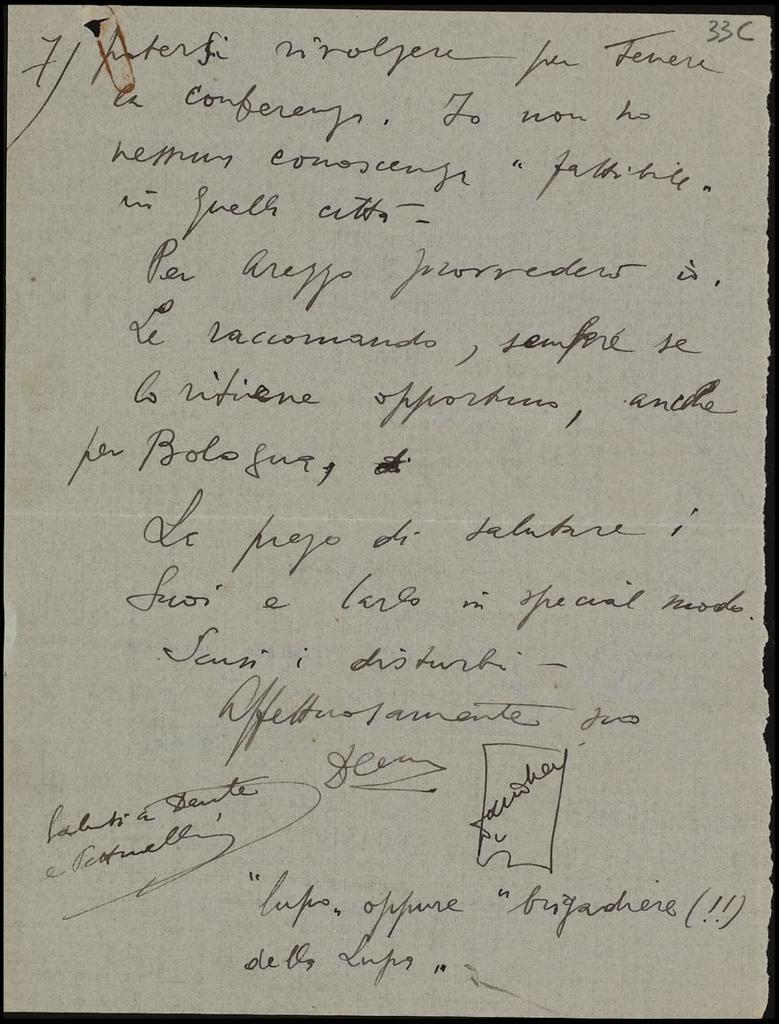 33C
7) potersi rivolgere per tenere
la conferenza. Io non ho
nessuna conoscenza "fattibile"
in quella città -
Per Arezzo provvederò io.
Le raccomando, sempre se
lo ritiene opportuno, anche
per Bologna,
La prego di salutare i
Suoi e Carlo in special modo.
Scusi i disturbi -
Affettuosamente suo
Saluti a Dante
e
"lupo" oppure "brigadiere (!!)
della Lupa"